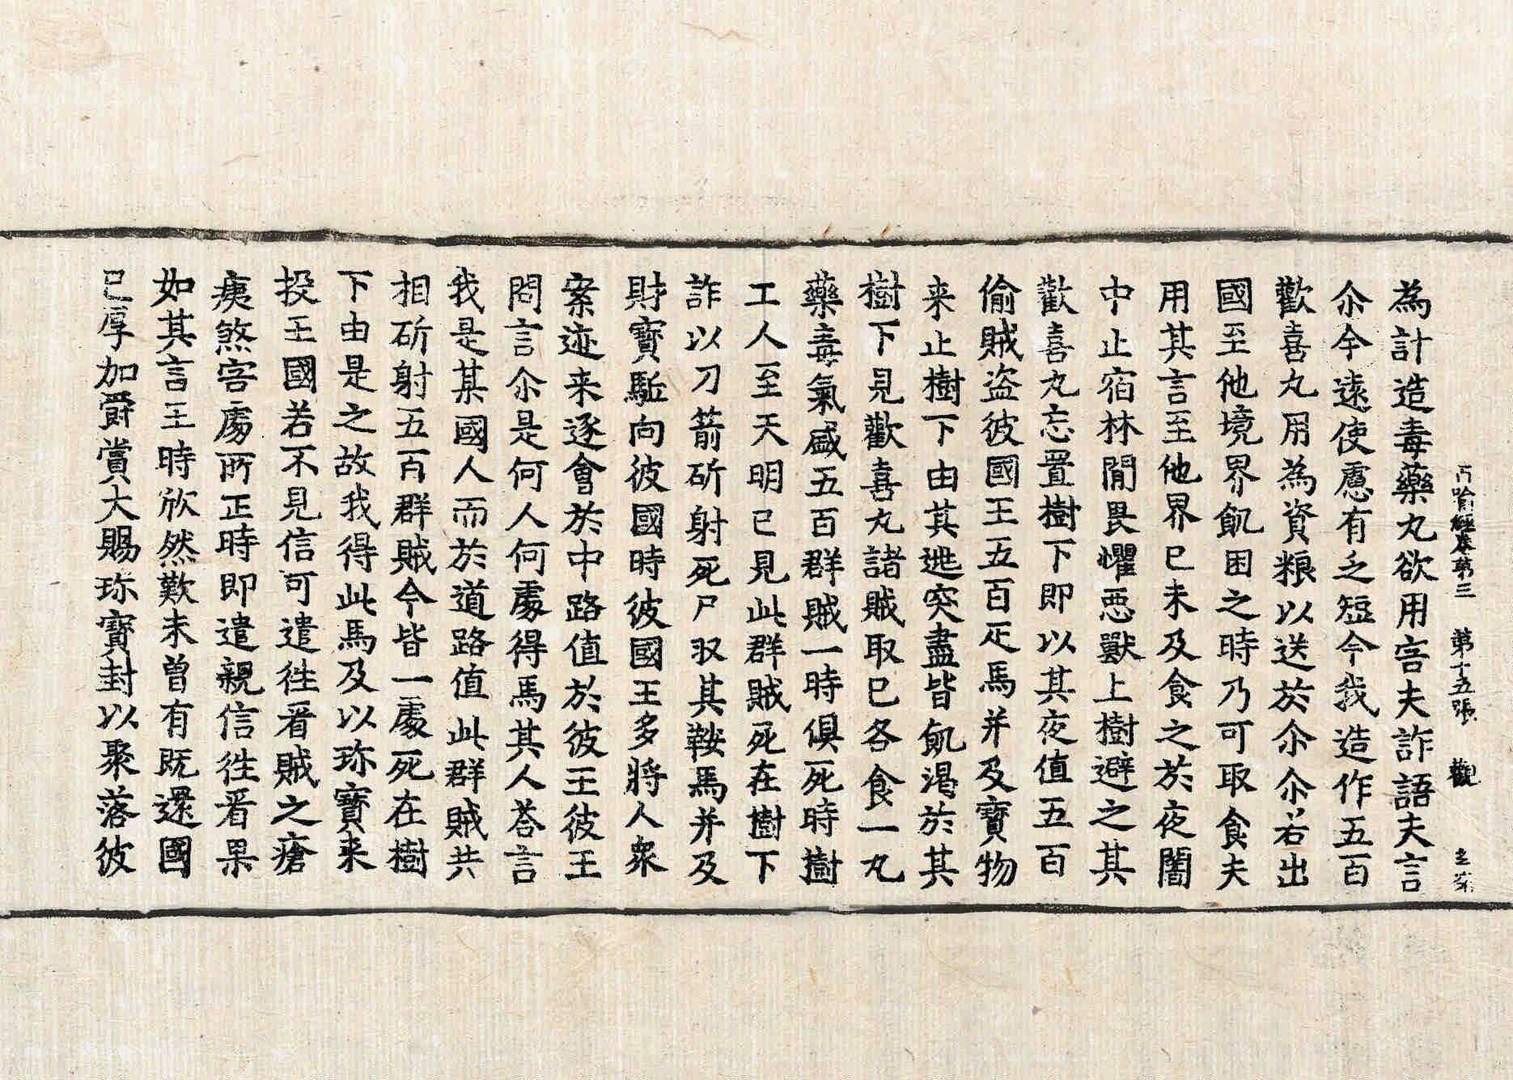 百喻經卷第三　第十五張　觀
為計造毒藥丸欲用害夫詐語夫言
尒今遠使慮有乏短今我造作五百
歡喜丸用為資粮以送於尒尒若出
國至他境界飢困之時乃可取食夫
用其言至他界已未及食之於夜闇
中止宿林間畏懼惡獸上樹避之其
歡喜丸忘置樹下即以其夜值五百
偷賊盗彼國王五百疋馬并及寶物
来止樹下由其逃突盡皆飢渴於其
樹下見歡喜丸諸賊取已各食一丸
藥毒氣盛五百群賊一時俱死時樹
工人至天明已見此群賊死在樹下
詐以刀箭斫射死尸収其鞍馬并及
財寶駈向彼國時彼國王多將人衆
案迹来逐會於中路值於彼王彼王
問言尒是何人何處得馬其人荅言
我是某國人而於道路值此群賊共
相斫射五百群賊今皆一處死在樹
下由是之故我得此馬及以珎寶来
投王國若不見信可遣往看賊之瘡
痍煞害處所王時即遣親信往看果
如其言王時欣然歎未曾有既還國
已厚加爵賞大賜珎寶封以聚落彼